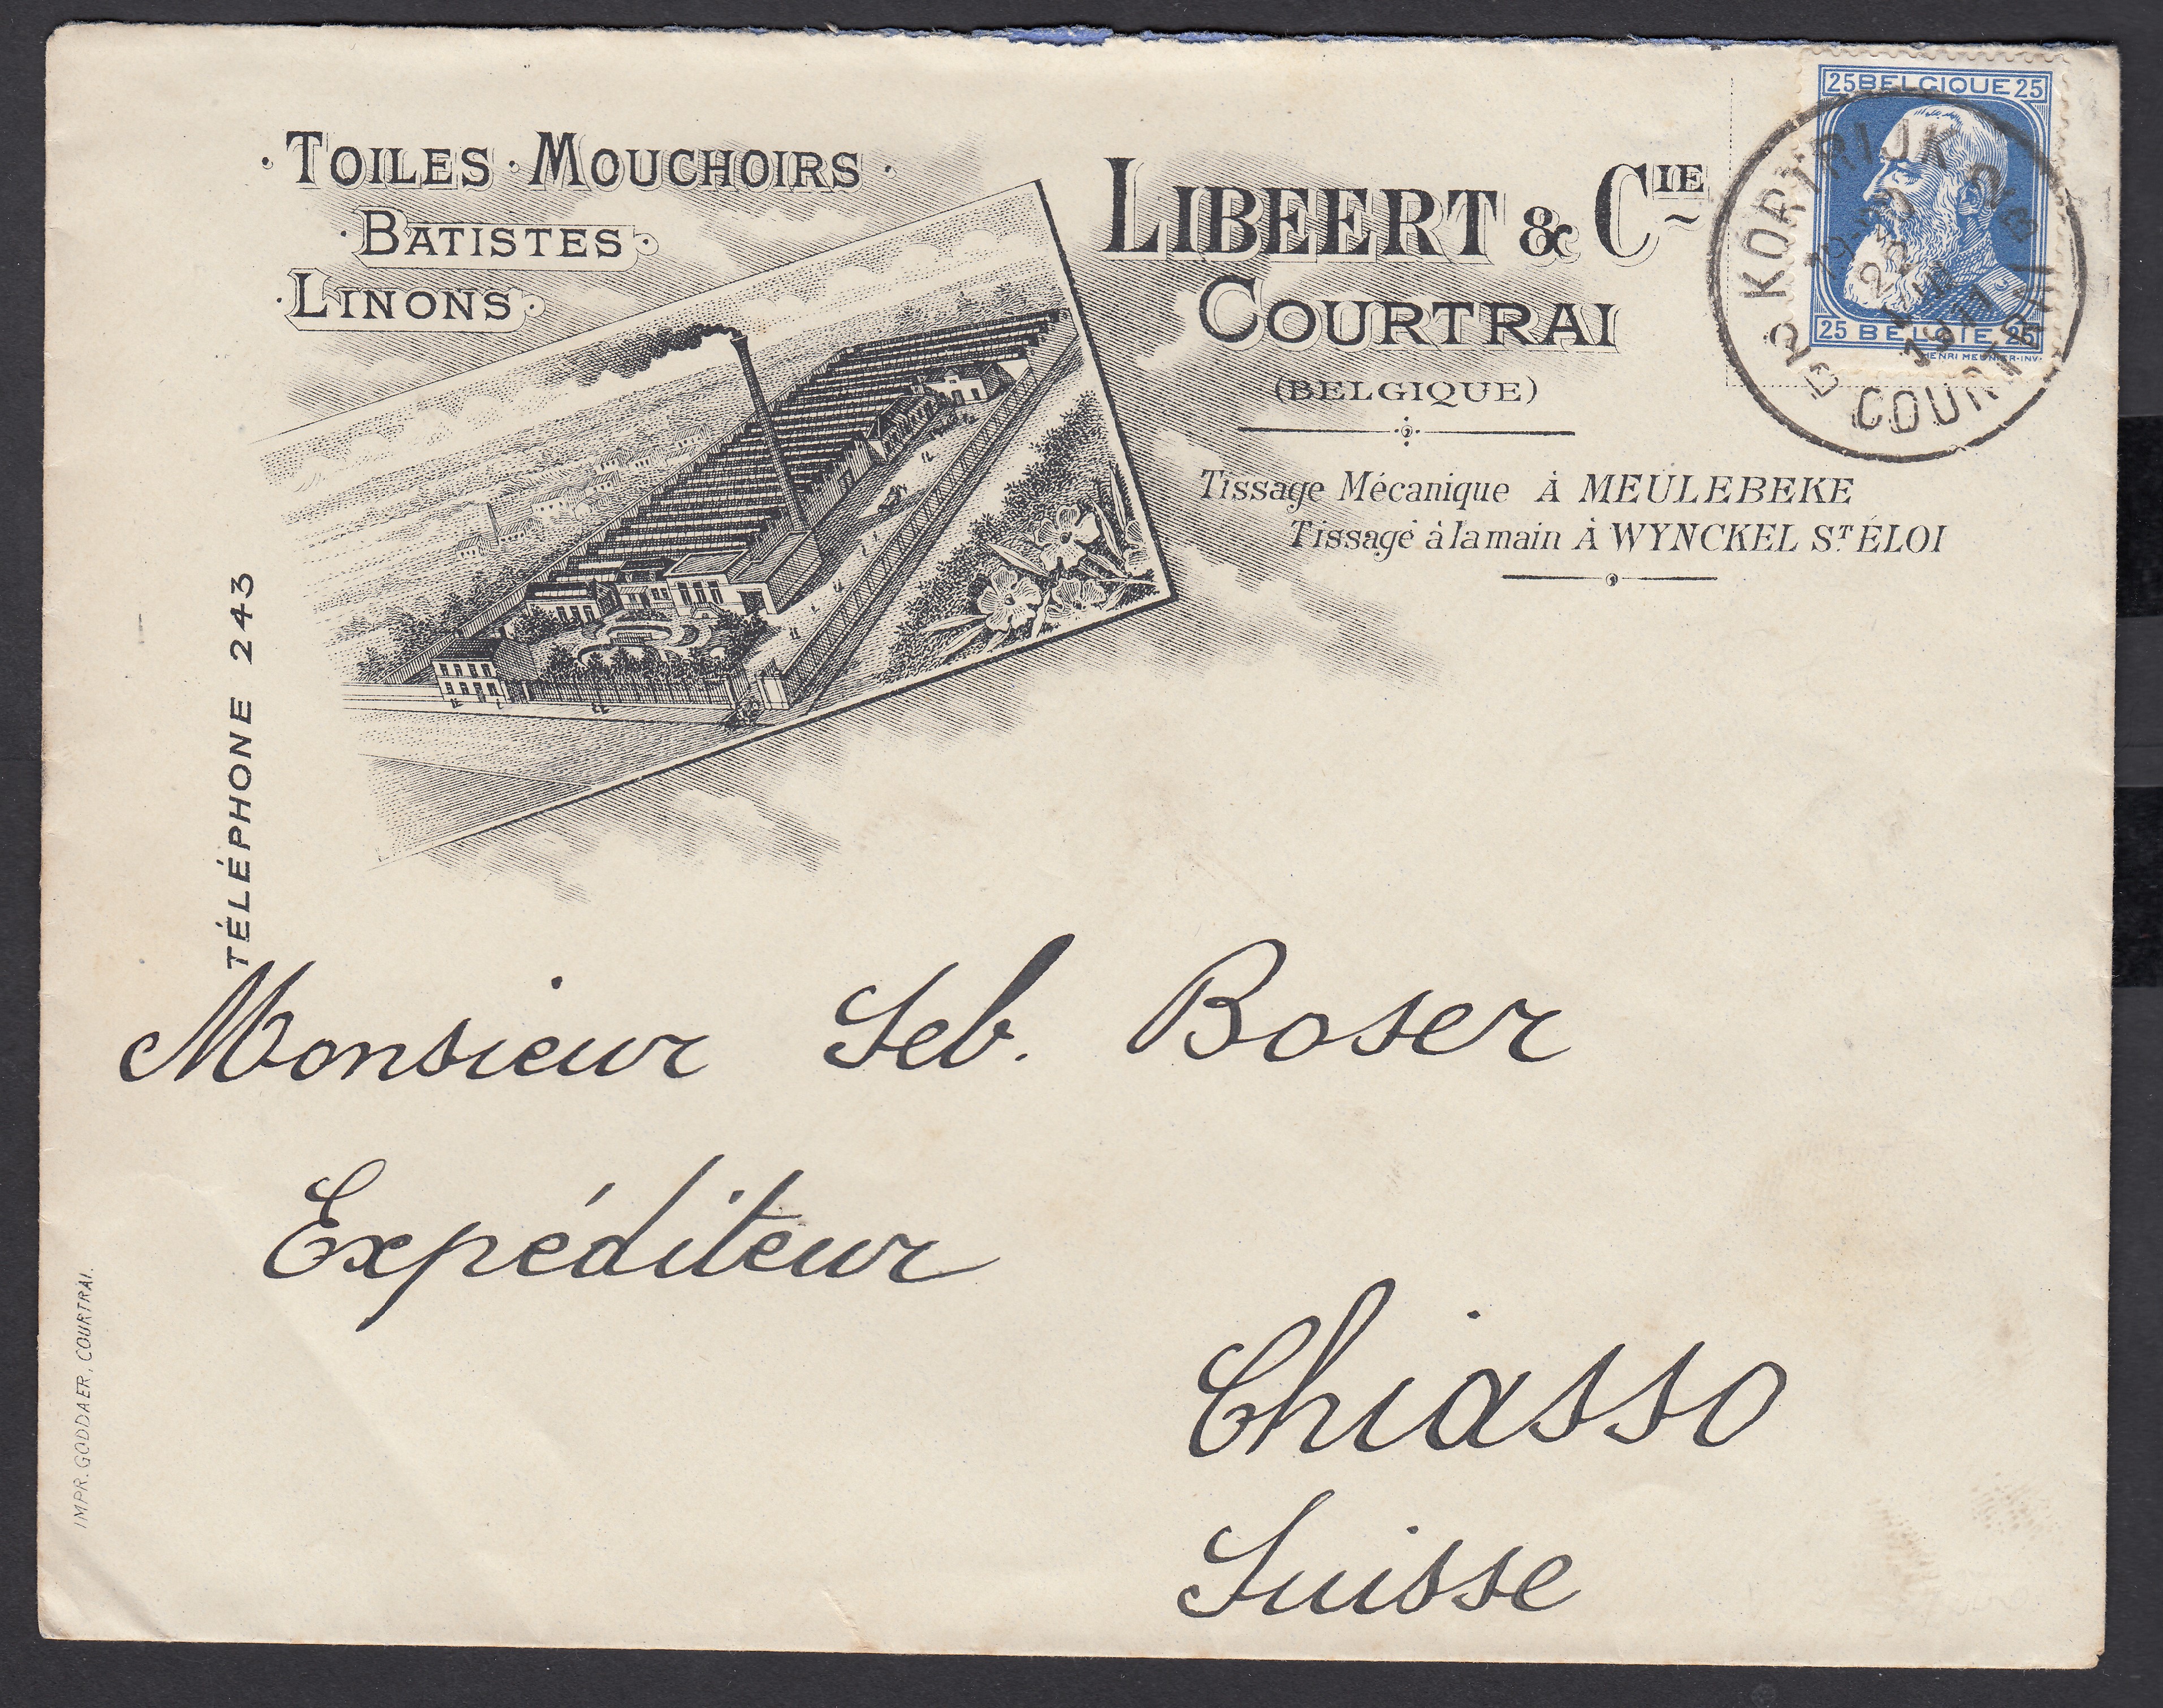 TOILES · MOUCHOIRS
BATISTES
LINONS
LIBEERT & CIE
COURTRAI
(BELGIQUE)
Tissage Mécanique À MEULEBEKE
Tissage à la main À WYNCKEL ST ÉLOI
TÉLÉPHONE 243
IMPR. GODDAER, COURTRAI.
25 BELGIQUE 25
25 BELGIE 25
HENRI MEUNIER·INV·
KORTRIJK 2B
COURTRAI 2B
Monsieur Seb. Boser
Expéditeur
Chiasso
Suisse